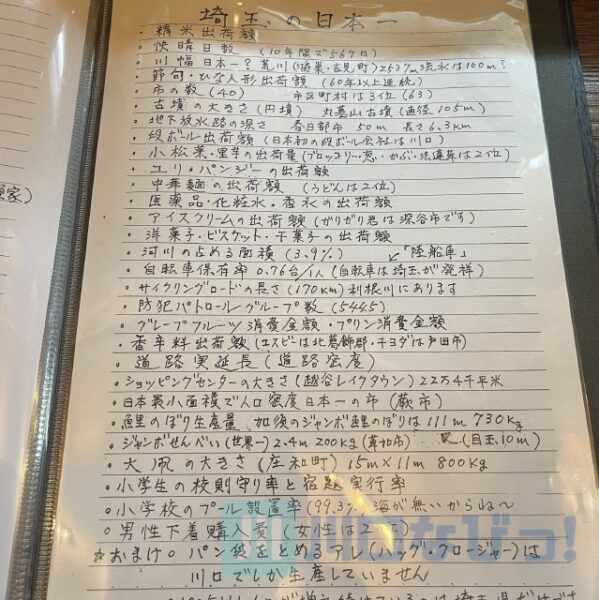 埼玉の日本一
・精米出荷額
・快晴日数 (10年間で567日)
・川幅日本一? 荒川(鴻巣・吉見町)2537m 流水は100m?
・節句・ひな人形出荷額 (60年以上連続)
・市の数(40) 市区町村は3位(63)
・古墳の大きさ(円墳) 丸墓山古墳(直径105m)
・地下放水路の深さ 春日部市 50m 長さ6.3km
・段ボール出荷額(日本初の段ボール会社は川口)
・小松菜・里芋の出荷量(ブロッコリー・葱・かぶ・法蓮草は2位)
・ユリ・パンジーの出荷額
・中華麺の出荷額 (うどんは2位)
・医薬品・化粧水・香水の出荷額
・アイスクリームの出荷額(ガリガリ君は深谷市です)
・洋菓子・ビスケット・干菓子の出荷額
・河川の占める面積(3.9%) 「陸船車」
・自転車保有率0.76台/1人(自転車は埼玉が発祥)
・サイクリングロードの長さ(170km)利根川にあります
・防犯パトロールグループ数(5445)
・グレープフルーツ消費金額・プリン消費金額
・香辛料出荷額(エスビは北葛飾郡・チヨダは戸田市)
・道路実延長(道路密度)
・ショッピングセンターの大きさ(越谷レイクタウン)22万4千平米
・日本最小面積で人口密度日本一の市(蕨市)
・鯉のぼり生産量 加須のジャンボ鯉のぼりは111m 730kg
・ジャンボせんべい(世界一)2.4m 200kg(草加市) (目玉10m)
・大凧の大きさ(庄和町)15m×11m 800kg
・小学生の校則守り率と宿題実行率
・小学校のプール設置率(99.3%)海が無いからね〜
・男性下着購入費(女性は2位)
☆おまけ。パン袋をとめるアレ(バッグ・クロージャー)は
川口でしか生産していません
家)
川口いなびっ!